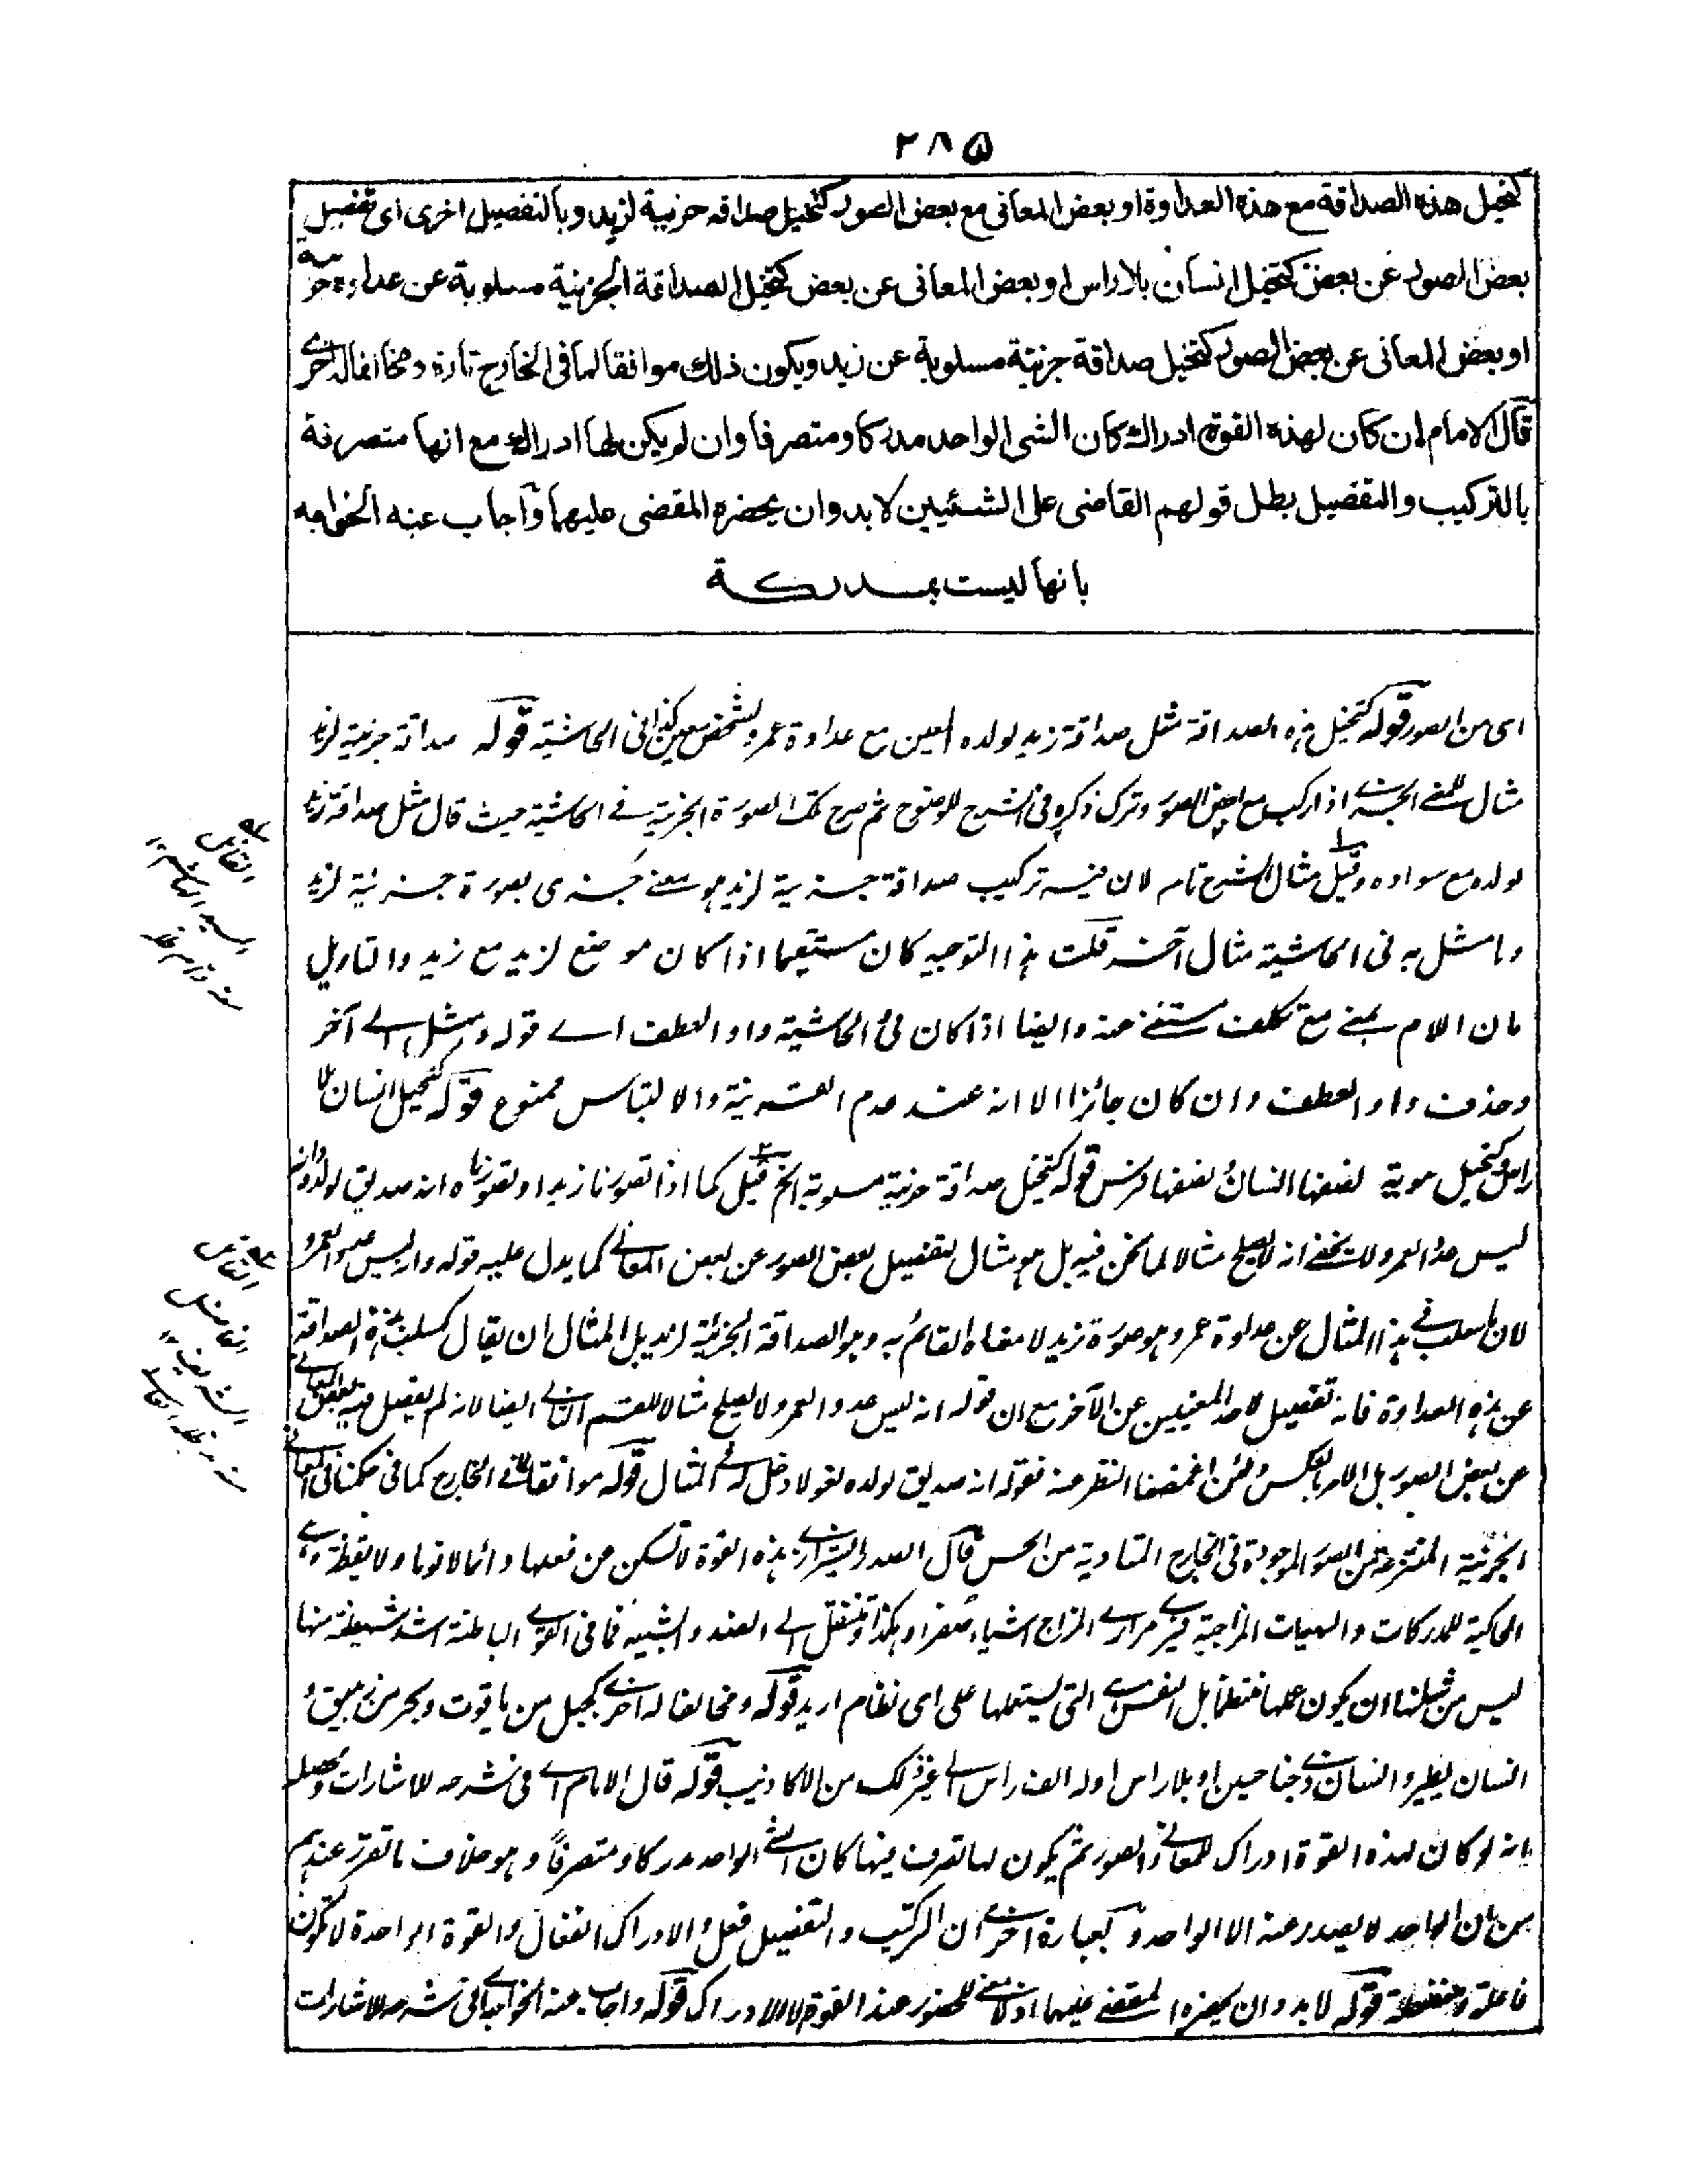 ٢٨۵
كتخيل هذه الصداقة مع هذه العداوة او بعض المعانى مع بعض الصور كتخيل صداقه جزئية لزيد وبالتفصيل اخرى اى تفصيل
بعض الصور عن بعض كتخيل انسان بلا راس او بعض المعانى عن بعض كتخيل الصداقة الجزئية مسلوبة عن عداوة جزئية
او بعض المعانى عن بعض الصور كتخيل صداقة جزئية مسلوبة عن زيد ويكون ذلك موافقا لما فى الخارج تارة ومخالفا له اخرے
قال الامام ان كان لهذه القوة ادراك كان الشى الواحد مدركا ومتصرفا وان لم يكن لها ادراك مع انها متصرفة
بالتركيب والتفصيل بطل قولهم القاضى على الشيئين لا بد وان يحضره المقضى عليهما وآجاب عنه الخواجه
بانها ليست بمدركة
اى من الصور قوله كتخيل هذه الصداقة مثل صداقة زيد لولده المعين مع عداوة عمرو لشخص معين كذا فى الحاشية قوله صداقة جزئية لزيد
مثال للمعنے الجزئے اذا ركب مع بعض الصور وترك ذكره فى الشرح للوضوح ثم صرح تلك الصورة الجزئية فے الحاشية حيث قال مثل صداقة زيد
لولده مع سواده وقيل مثال الشرح تام لان فيه تركيب صداقة جزئية لزيد هو معنے جزئى بصورة جزئية لزيد
وما مثل به فى الحاشية مثال آخر قلت هذا التوجيه كان مستقيما اذا كان موضع لزيد مع زيد والتاويل
بان اللام بمعنے مع تكلف مستغنے عنه وايضا اذا كان فى الحاشية واو العطف اے قوله ومثل الے آخر
وحذف واو العطف وان كان جائزا الا انه عند عدم القرينة والالتباس ممنوع قوله كتخيل انسان بلا
راس وكتخيل صورة نصفها انسان ونصفها فرس قوله كتخيل صداقة جزئية مسلوبة الخ قيل كما اذا تصورنا زيدا وتصورناه انه صديق لولده وانه
ليس عدوا لعمرو ولا يخفے انه لا يصلح مثالا لما نحن فيه بل هو مثال لتفصيل بعض الصور عن بعض المعانے كما يدل عليه قوله وانه ليس عدوا لعمرو
لان ما سلب فے هذا المثال عن عداوة عمرو هو صورة زيد لا معناه القائم به وهو الصداقة الجزئية لزيد بل المثال ان يقال كسلب هذه الصداقة
عن هذه العداوة فانه تفصيل لاحد المعنيين عن الآخر مع ان قوله انه ليس عدوا لعمرو لا يصلح مثالا للقسم الثانے ايضا لانه لم يفصل فيه بعض المعانے
عن بعض الصور بل الامر بالعكس ولئن اغمضنا النظر عنه فقوله انه صديق لولده لغو لا دخل له فے المثال قوله موافقا لما فے الخارج كما فى حكمنا فى المعانے
الجزئية المنتزعة من الصور الموجودة فى الخارج المتادية من الحس قال الصدر الشيرازے هذه القوة لا تسكن عن فعلها دائما لا نوما ولا يقظة وهے
المحاكية للمدركات والهيئات المزاجية فيرے مرارے المزاج اشياء صفراء وهكذا وتنتقل الے الضد والشبيه فما فى القوے الباطنة اشد شيطنة منها
ليس من شانها ان يكون عملها منتظما بل النفس هے التى يستعملها على اى نظام اريد قوله ومخالفا له اخرے كجبل من ياقوت وبحر من زيبق و
انسان يطير وانسان ذے جناحين او بلا راس او له الف راس الے غير ذلك من الاكاذيب قوله قال الامام اے فى شرحه للاشارات ومحصله
بانه لو كان لهذه القوة ادراك للمعانے والصور ثم يكون لها تصرف فيها كان الشئ الواحد مدركا ومتصرفاً وهو خلاف ما تقرر عندهم
من ان الواحد لا يصدر عنه الا الواحد وبعبارة اخرے ان التركيب والتفصيل فعل والادراك انفعال والقوة الواحدة لا تكون
فاعلة ومنفعلة قوله لا بد وان يحضره المقضے عليهما اذ لا معنے للحضور عند القوة الا الادراك قوله واجاب عنه الخواجه اے فى شرحه للاشارات